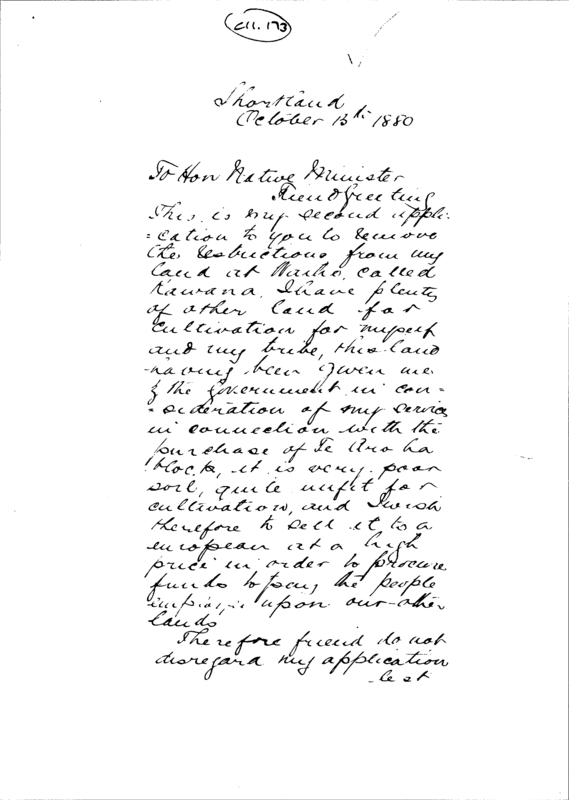 C11.173
Shortland
October 13th 1880
To Hon Native Minister
Friend Greeting
This is my second appli:
=cation to you to remove
the restrictions from my
land at Waiho, called
Kawana. I have plenty
of other land for
cultivation for myself
and my tribe, this land
having been given me
by the Government in con=
=sideration of my services
in connection with the
purchase of Te Aroha
block, it is very poor
soil, quite unfit for
cultivation, and I wish
therefore to sell it to a
european at a high
price in order to procure
funds to pay the people
upon our other
lands
Therefore friend do not
disregard my application
lest